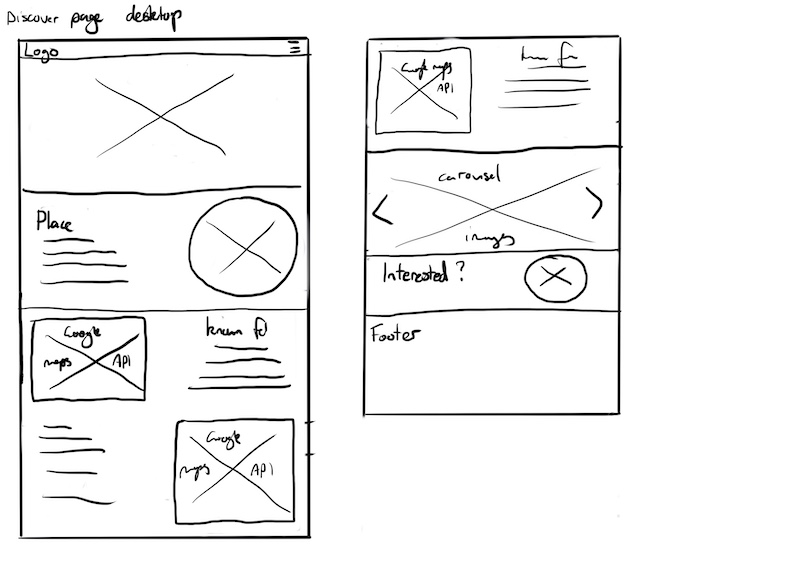 Discover page desktop
Logo
Place
Google
maps API
known for
Google
maps API
Google maps
API
known for
carousel
images
Interested?
Footer